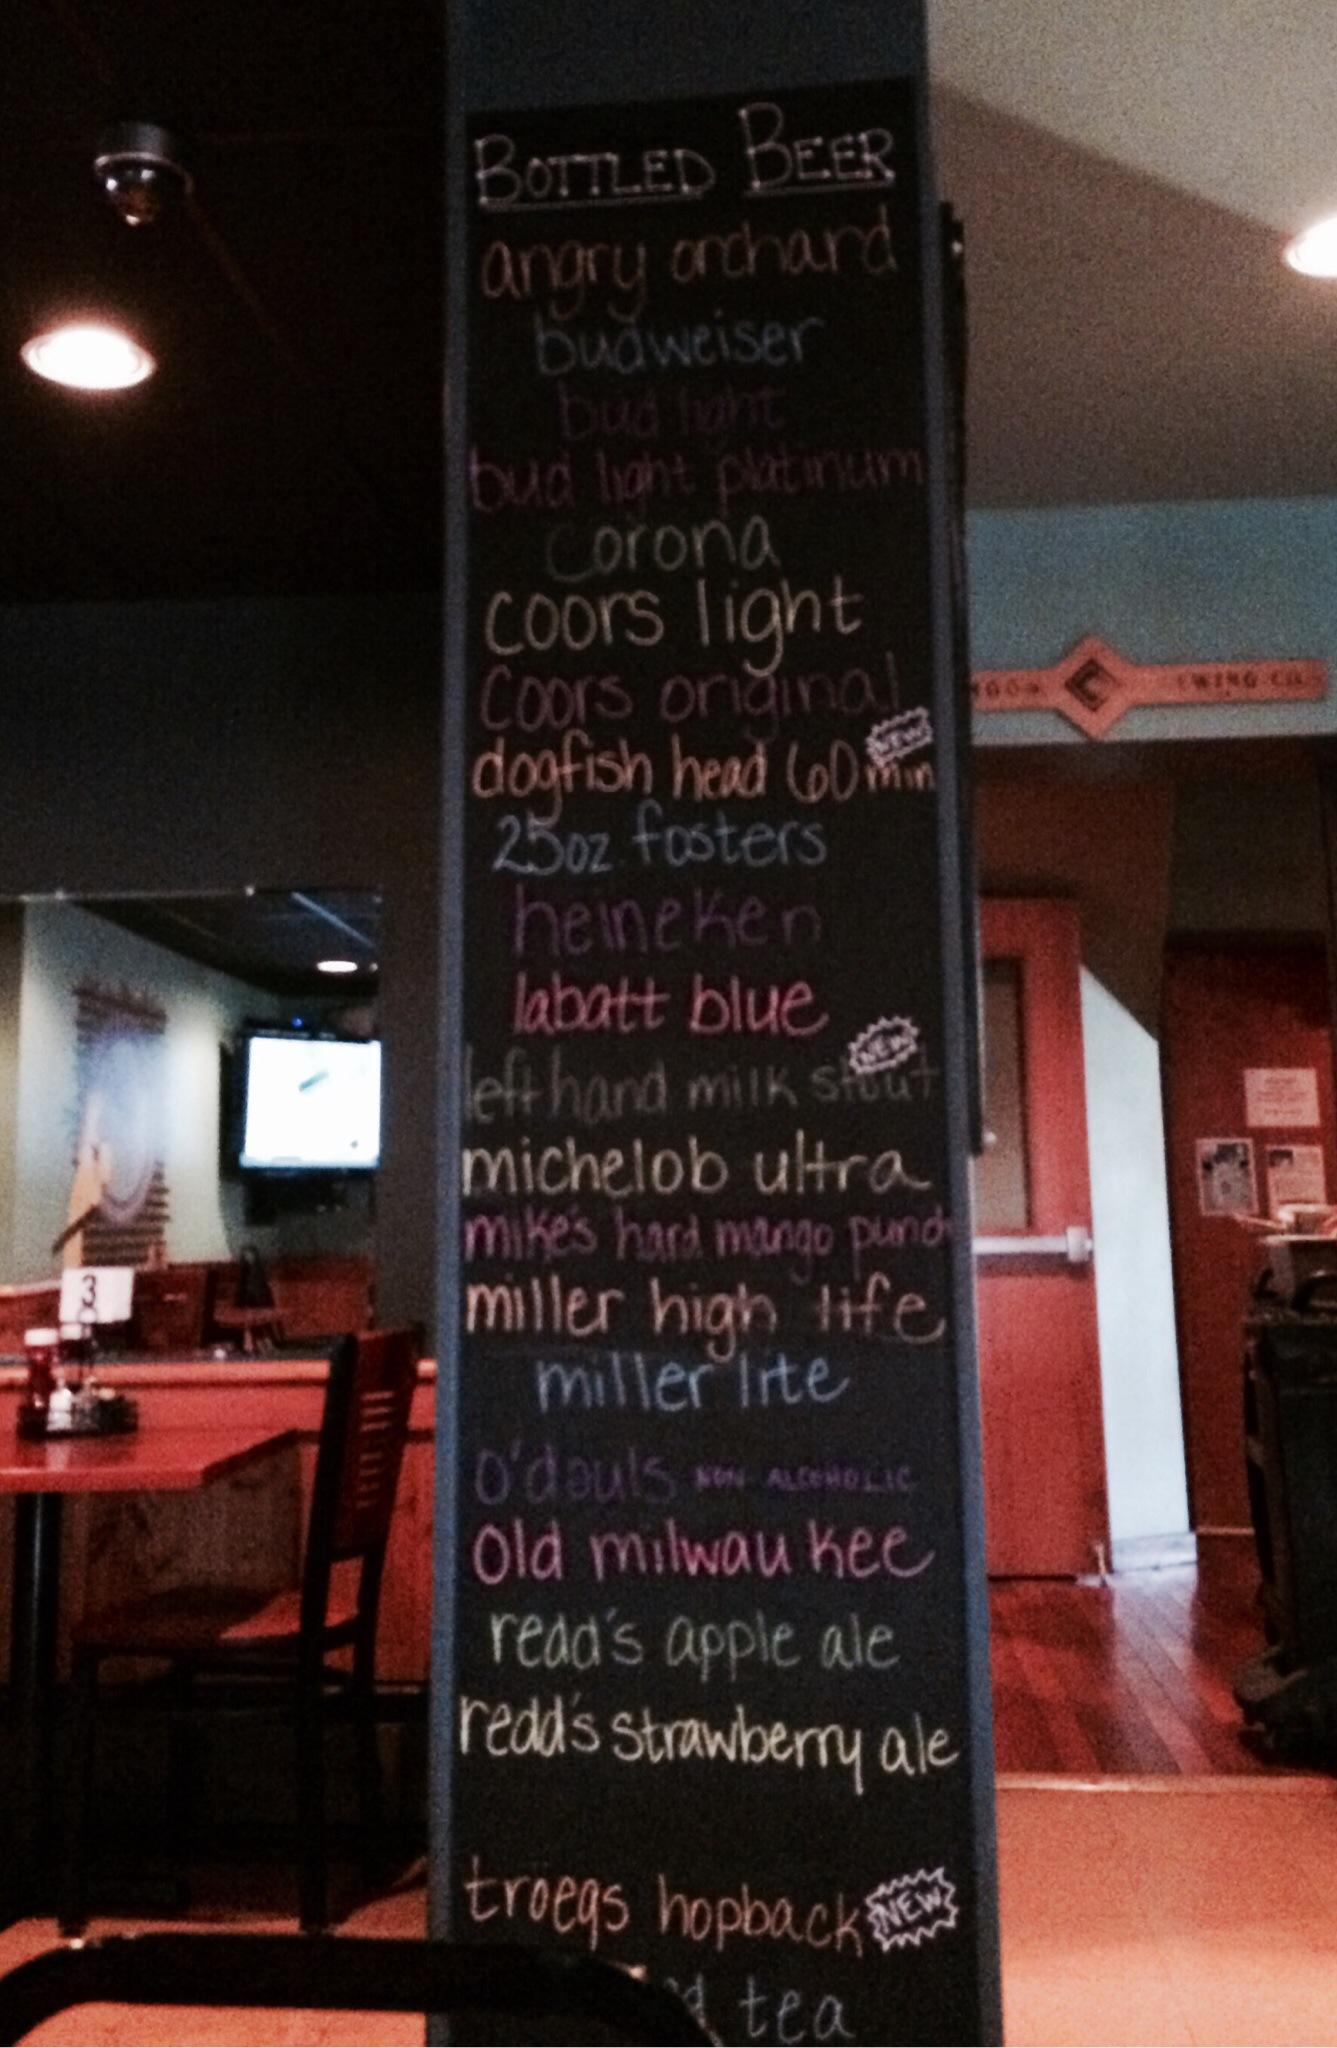 BOTTLED BEER
angry orchard
budweiser
bud light
bud light platinum
corona
coors light
coors original
NEW
dogfish head 60 min
25oz. fosters
heineken
labatt blue
NEW
left hand milk stout
michelob ultra
mike's hard mango punch
miller high life
miller lite
o'douls NON-ALCOHOLIC
old milwaukee
redd's apple ale
redd's strawberry ale
troegs hopback NEW
tea
3
WING CO.